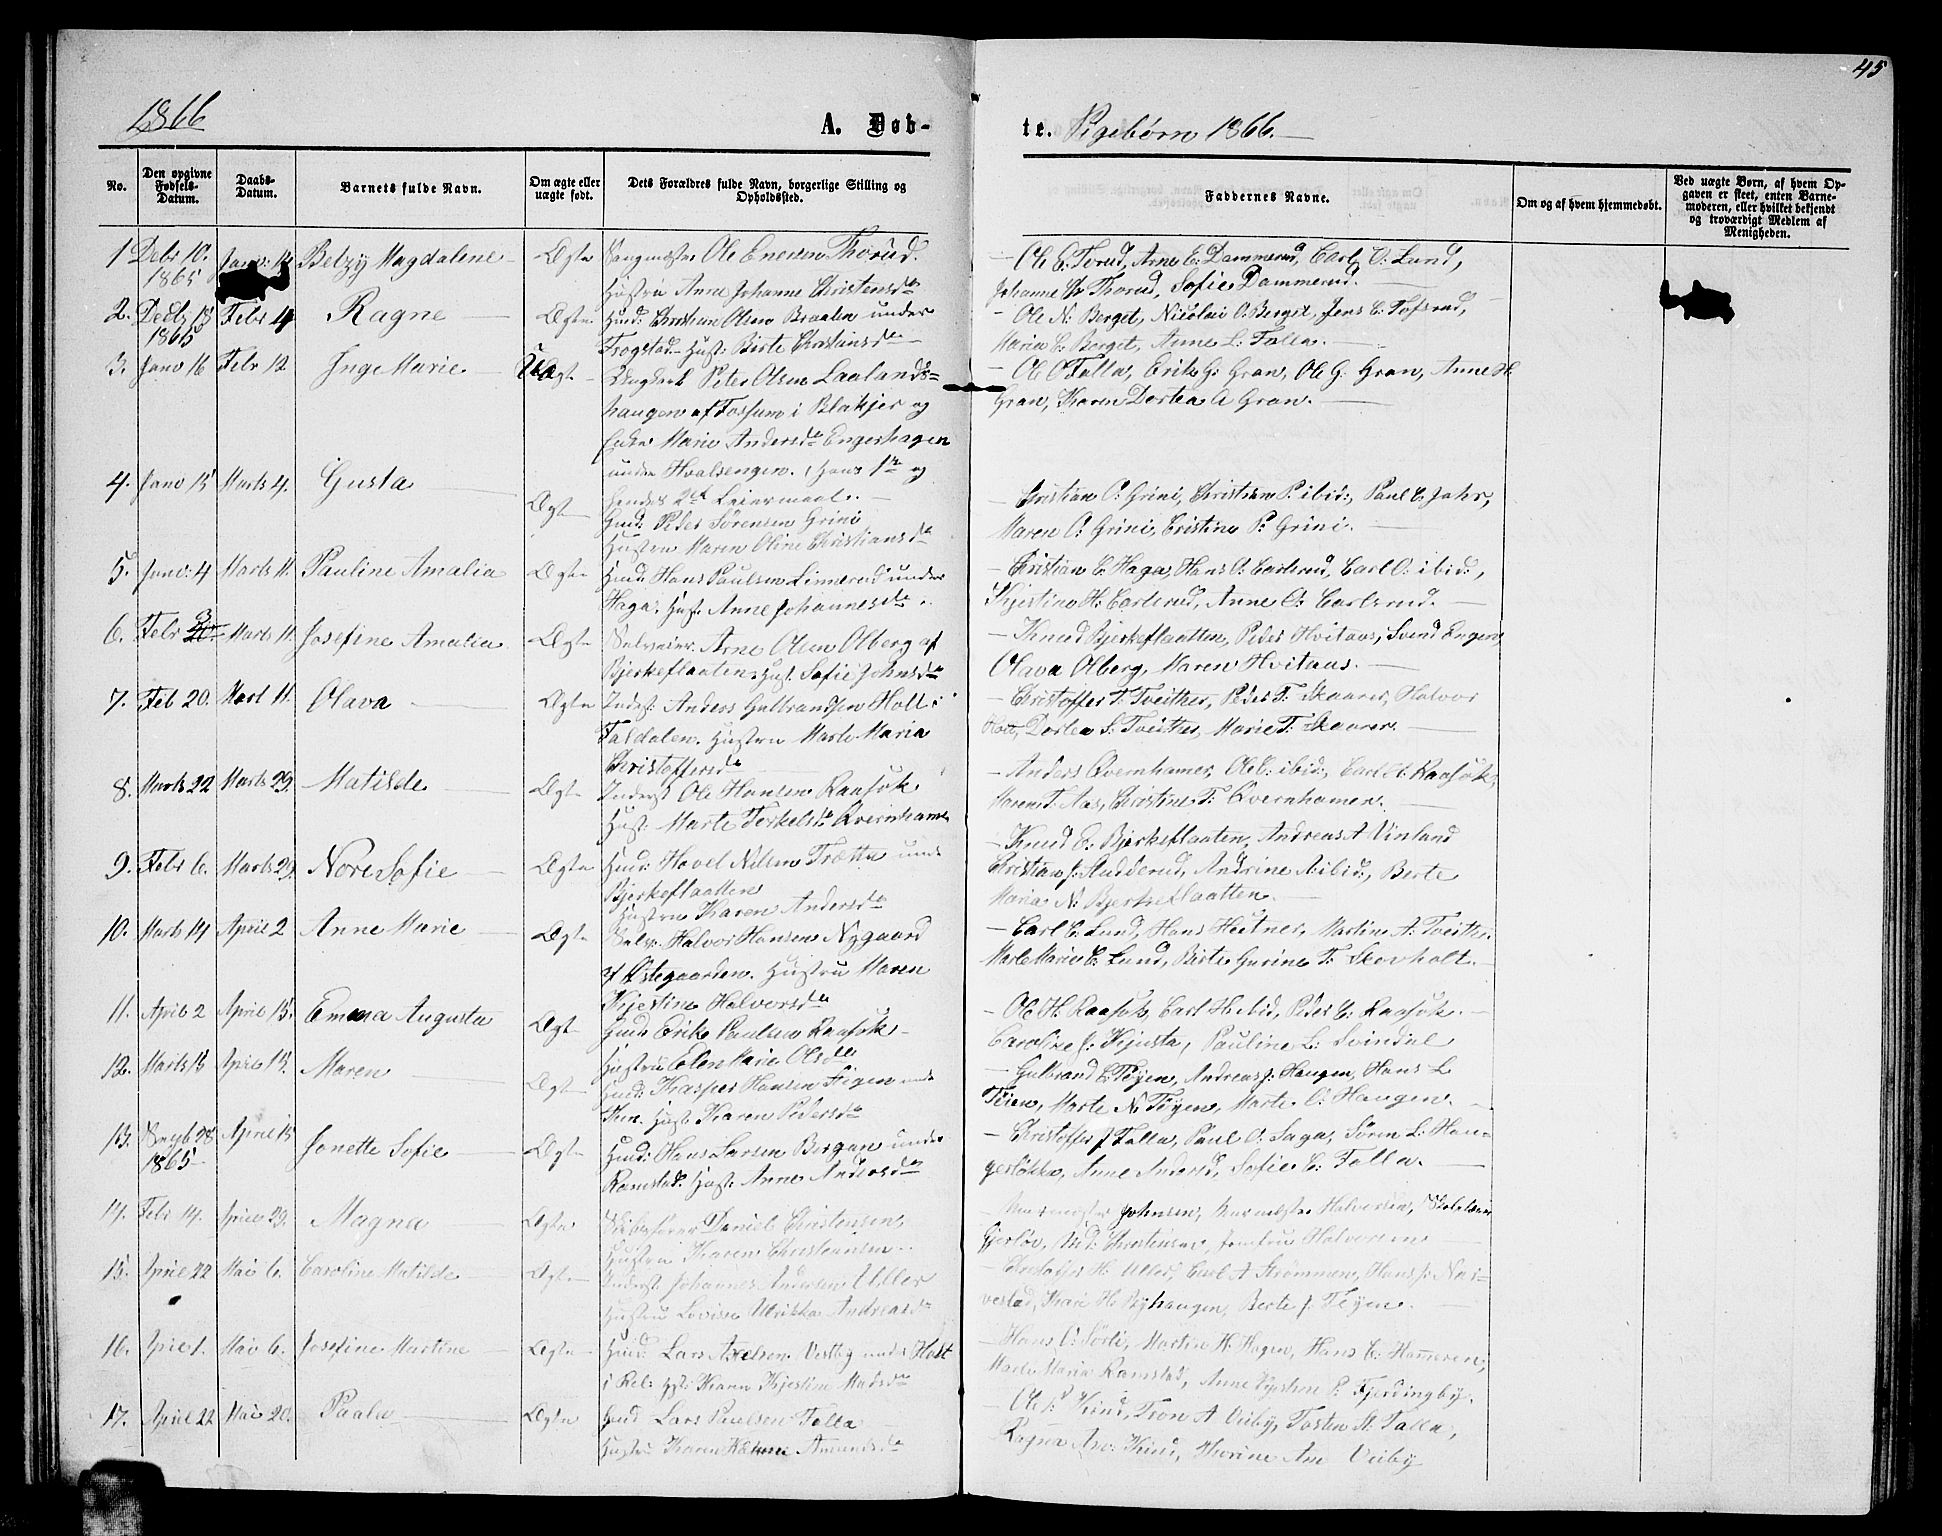 45
1866
A. Døb-
te. Pigebørn 1866.
No.
Den opgivne Fødsels-Datum.
Daabs-Datum.
Barnets fulde Navn.
Om ægte eller uægte født.
Dets Forældres fulde Navn, borgerlige Stilling og Opholdssted.
Faddernes Navne.
Om og af hvem hjemmedøbt.
Ved uægte Børn, af hvem Opgaven er skeet, enten Barnemoderen, eller hvilket bekjendt og troværdigt Medlem af Menigheden.
1 Decbr 10. 1865 Betzy Magdalene Ægte Ole Enersen Thorud.
Hustru Anne Johanne Christensdr
Ole E. Torud, Arne E. Dammerud, Carl O. Lund,
Johanne Thorud, Sofie Dammerud.
2. Decbr 1865 Febr 4 Ragne Ægte Huusd: Christian Olsen Braaten under
Trogstad. Hust: Birte Christiansdr
Ole N. Berget, Nicolai O. Berget, Jens E. Tofsrud,
Maria E. Berget, Anne L. Falla.
3. Janv 16 Febr 12 Inge Marie Uægte Peter Olsen Laalands-
haugen af Fossum i Blakjer og
Enke Marie Andersdr Engerhagen
under Hvalsengen. Hans 1ste og
hendes 2det Leiermaal.
Ole O Falla, Erik G. Gran, Ole G. Gran, Anne H.
Gran, Karen Dortea A Gran.
4. Janv 15 Marts 4. Gusta Ægte Huusd: Peder Sørensen Grini
Hustru Maren Oline Christiansdr
Christian O. Grini, Christian P. ibid:, Paul C. Jahr,
Maren O. Grini, Cristine P. Grini.
5. Janv: 4 Marts 11. Pauline Amalia Ægte Huusd Hans Paulsen Linnerud under
Haga. Hust. Anne Johannesdr
Christian E. Haga, Hans O. Carlsrud, Carl O. ibid:,
Kjestine H. Carlsrud, Anne O. Carlsrud.
6. Febr 3 Marts 11. Josefine Amalia Ægte Selveier Arne Olsen Olberg af
Bjerkeflaaten. Hust. Sofie Johnsdr
Knud Bjerkeflaatten, Peder Hvitaas, Svend Engen,
Olava Olberg, Maren Hvitaas.
7. Feb 20. Mart 11. Olava Ægte Inderst: Anders Gulbrandsen Holt i
Faldalen. Hustru Marte Maria
Christoffersdr
Christoffer T. Tveither, Peder T. Skaarer, Halvor
Holt, Dortea S. Tveither, Marie T. Skaarer.
8. Marts 22 Marts 29. Matilde Ægte Inderst Ole Hansen Raasok
Hust: Marte Terkelsdr Qvernhamer
Anders Qvernhamer, Ole E. ibid:, Carl H. Raasok,
Maren T. Aas, Christine T. Qvernhamer.
9. Febr 6. Marts 29. Nore Sofie Ægte Huusd: Hovel Nilsen Trætta under
Bjerkeflaatten
Hustru Karen Andersdr
Knud E. Bjerkeflaaten, Andreas A Vinland
Christian J. Andrine A ibid:, Berte
Maria N. Bjerkeflaatten.
10. Marts 14 April 2 Anne Marie Ægte Selve: Halvor Hansen Nygaard
af Østegaarden. Hustru Maren
Kjestine Halvorsdr
Carl E. Lund, Hans Heitner, Martine A. Tveither.
Marte Marie E. Lund, Birte Gurine T. Skovholt.
11. April 2 April 15. Emma Augusta Ægte Huusd Erik Paulsen Raasok
Hustru Elen Marie Olsdr
Ole H. Raasok, Carl H ibid, Peder E. Raasok.
Caroline J. Kjusta, Pauline L. Svindal
12. Marts 15 April 15. Maren Ægte Huusd: Krasper Hansen under
Hust Karen Pedersdr
Gulbrand E. Teijen, Andreas J. Haugen, Hans L
Teien, Marte N. Teijen, Marte O. Haugen.
13. 28 1865 April 15 Jonette Sofie Ægte Huusd: Hans Larsen Bergan under
Ramstad. Hust: Anne Andersdr
Christoffer J Falla, Paul O. Saga, Søren L. Han-
gerløkka, Anne Andersd, Sofie E. Falla.
14. Febr 14. April 29. Magna Ægte Skibsfører Daniel Christensen,
Hustru Karen Christiansen.
Johnsen, Halvorsen, Skolelærer
Gjersløv, Christensen, Jomfru Halvorsen
15. April 22 Mai 6. Caroline Matilde Ægte Inderst Johannes Andersen Uller
Hustru Lovise Ulrikka Andreasdr
Christoffer H. Uller, Carl A Strømmen, Hans J. Nar-
vestad, Kari H. Byhaugen, Berte J. Teijen.
16. April 1. Mai 6. Josefine Martine Ægte Huusd: Lars Axelsen Vestby under Holt
i Rel: Hust: Karen Kjestine Madsdr
Hans O. Sørli, Martin H. Hagen, Hans E. Hammeren,
Marte Maria Ramstad, Anne Kjestine P. Fjerdingby.
17. April 22 Mai 20. Paala Ægte Huusd Lars Paulsen Falla
Hustru Karen Amundsdr
Ole Kind, Tron A Vieby, Tosten St. Falla,
Ragna Kind, Thorine Am Vieby